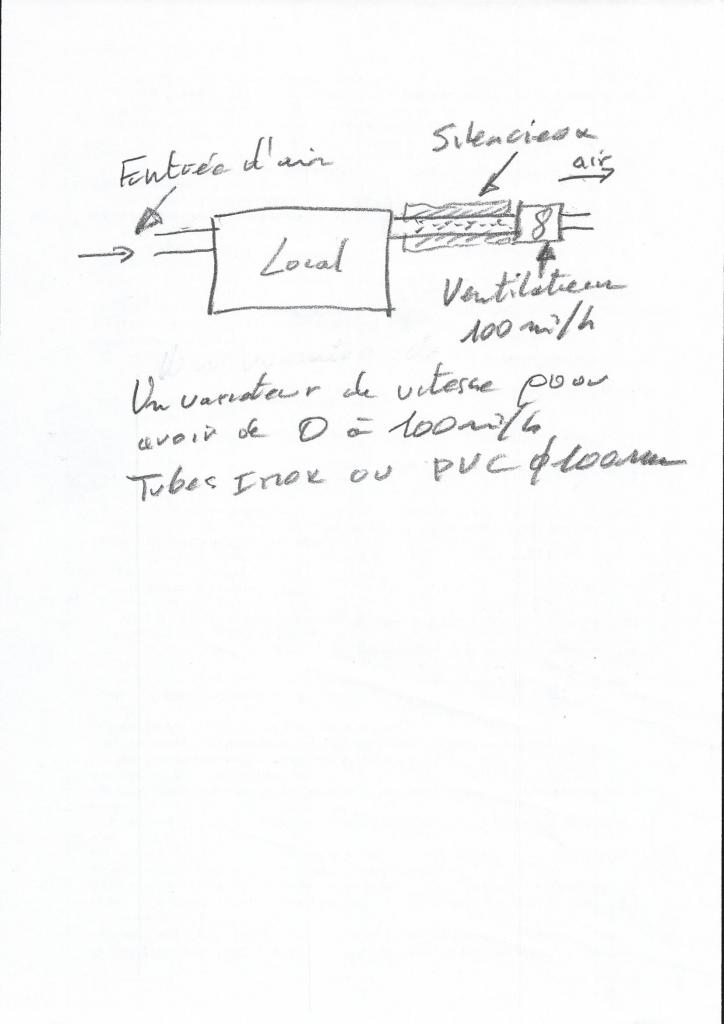 Silencieux
Entrée d'air
air
Local
8
Ventilateur
100 m³/h
Un variateur de vitesse pour
avoir de 0 à 100 m³/h
Tubes Inox ou PVC ϕ100mm